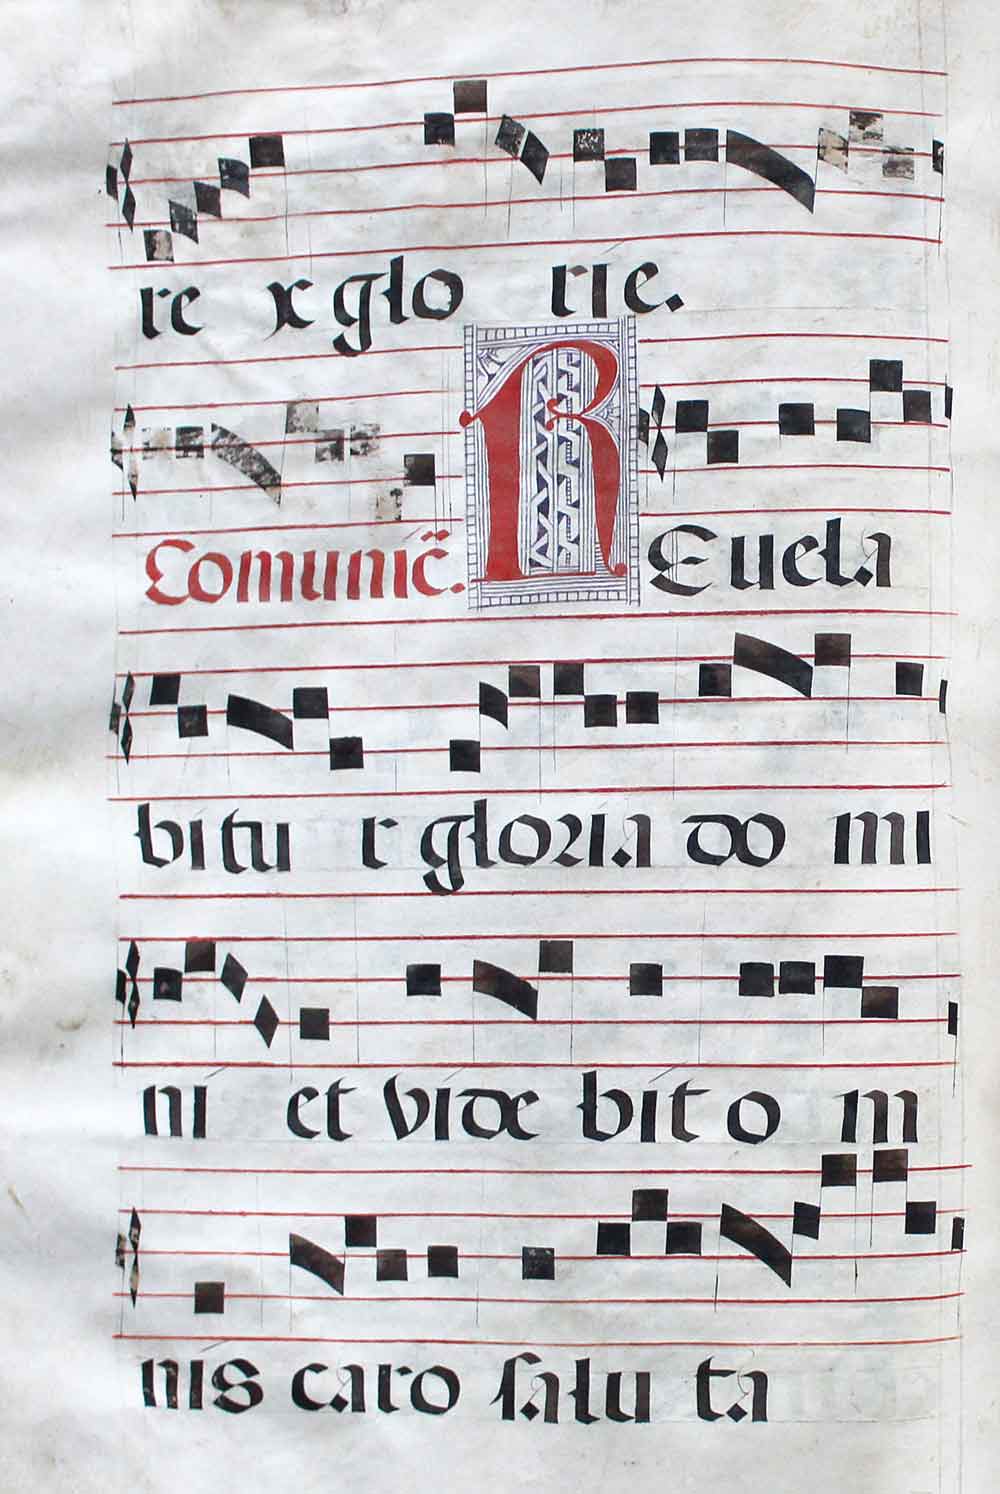 re x glo rie.
Comunic̃. REuela
bitu r gloria do mi
ni et vide bit o m
nis caro salu ta